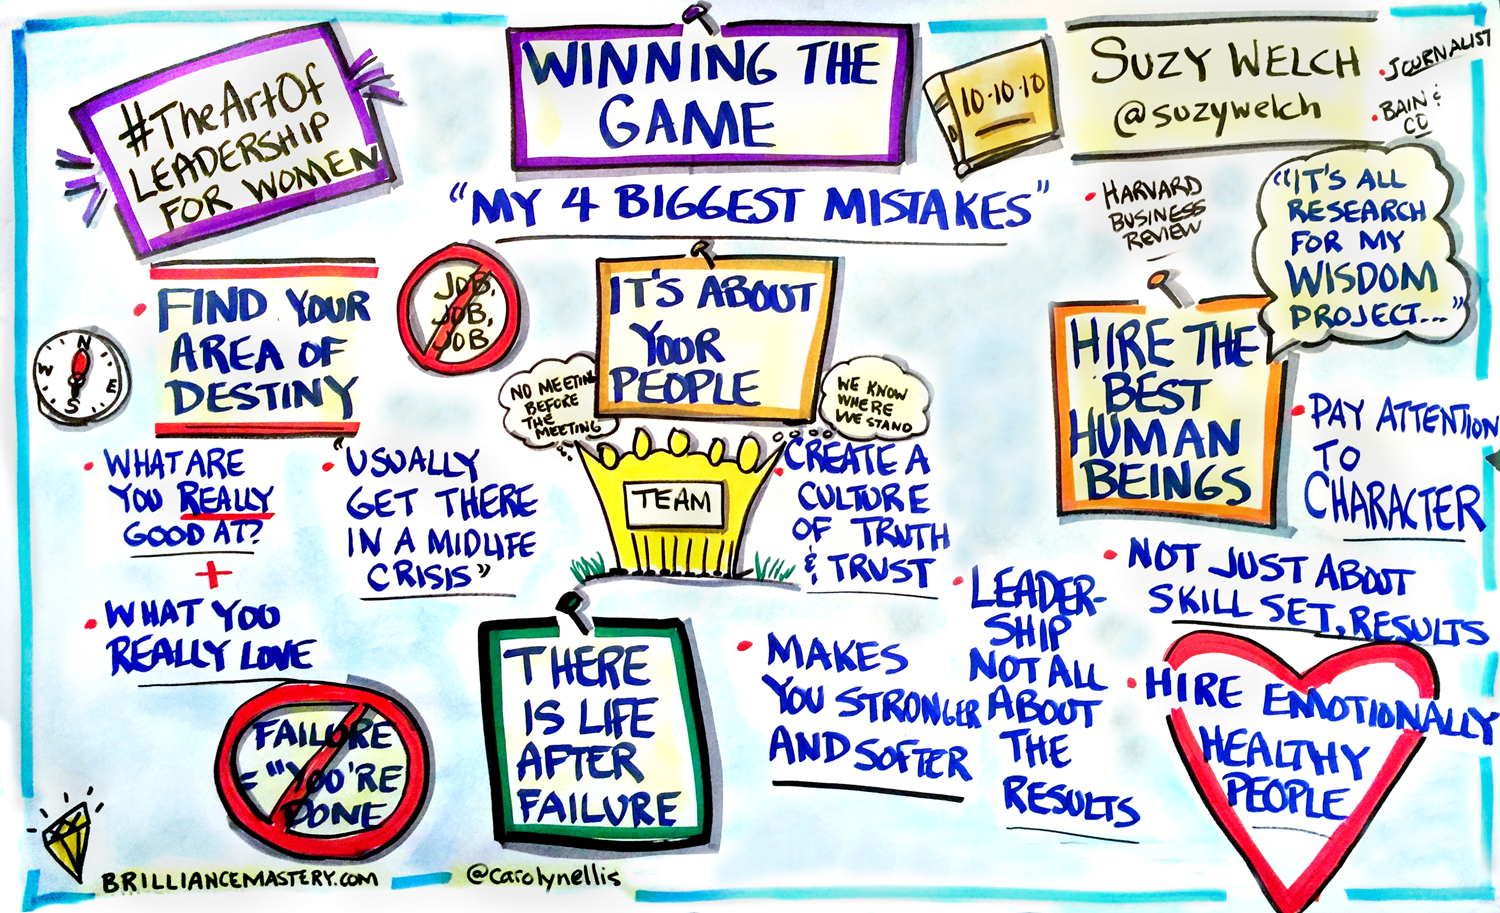 #TheArtOf
LEADERSHIP
FOR WOMEN
WINNING THE
GAME
10·10·10
SUZY WELCH
@suzywelch
• JOURNALIST
• BAIN &
CO
• HARVARD
BUSINESS
REVIEW
"MY 4 BIGGEST MISTAKES"
"IT'S ALL
RESEARCH
FOR MY
WISDOM
PROJECT..."
• FIND YOUR
AREA OF
DESTINY
N
W
E
S
JOB,
JOB,
JOB
• WHAT ARE
YOU REALLY
GOOD AT?
+
• WHAT YOU
REALLY LOVE
• "USUALLY
GET THERE
IN A MIDLIFE
CRISIS"
IT'S ABOUT
YOUR
PEOPLE
NO MEETING
BEFORE
THE
MEETING
WE KNOW
WHERE
WE STAND
TEAM
• CREATE A
CULTURE
OF TRUTH
& TRUST
• LEADER-
SHIP
NOT ALL
ABOUT
THE
RESULTS
HIRE THE
BEST
HUMAN
BEINGS
• PAY ATTENTION
TO
CHARACTER
• NOT JUST ABOUT
SKILL SET, RESULTS
• HIRE EMOTIONALLY
HEALTHY
PEOPLE
FAILURE
= "YOU'RE
DONE
THERE
IS LIFE
AFTER
FAILURE
• MAKES
YOU STRONGER
AND SOFTER
BRILLIANCEMASTERY.COM
@carolynellis